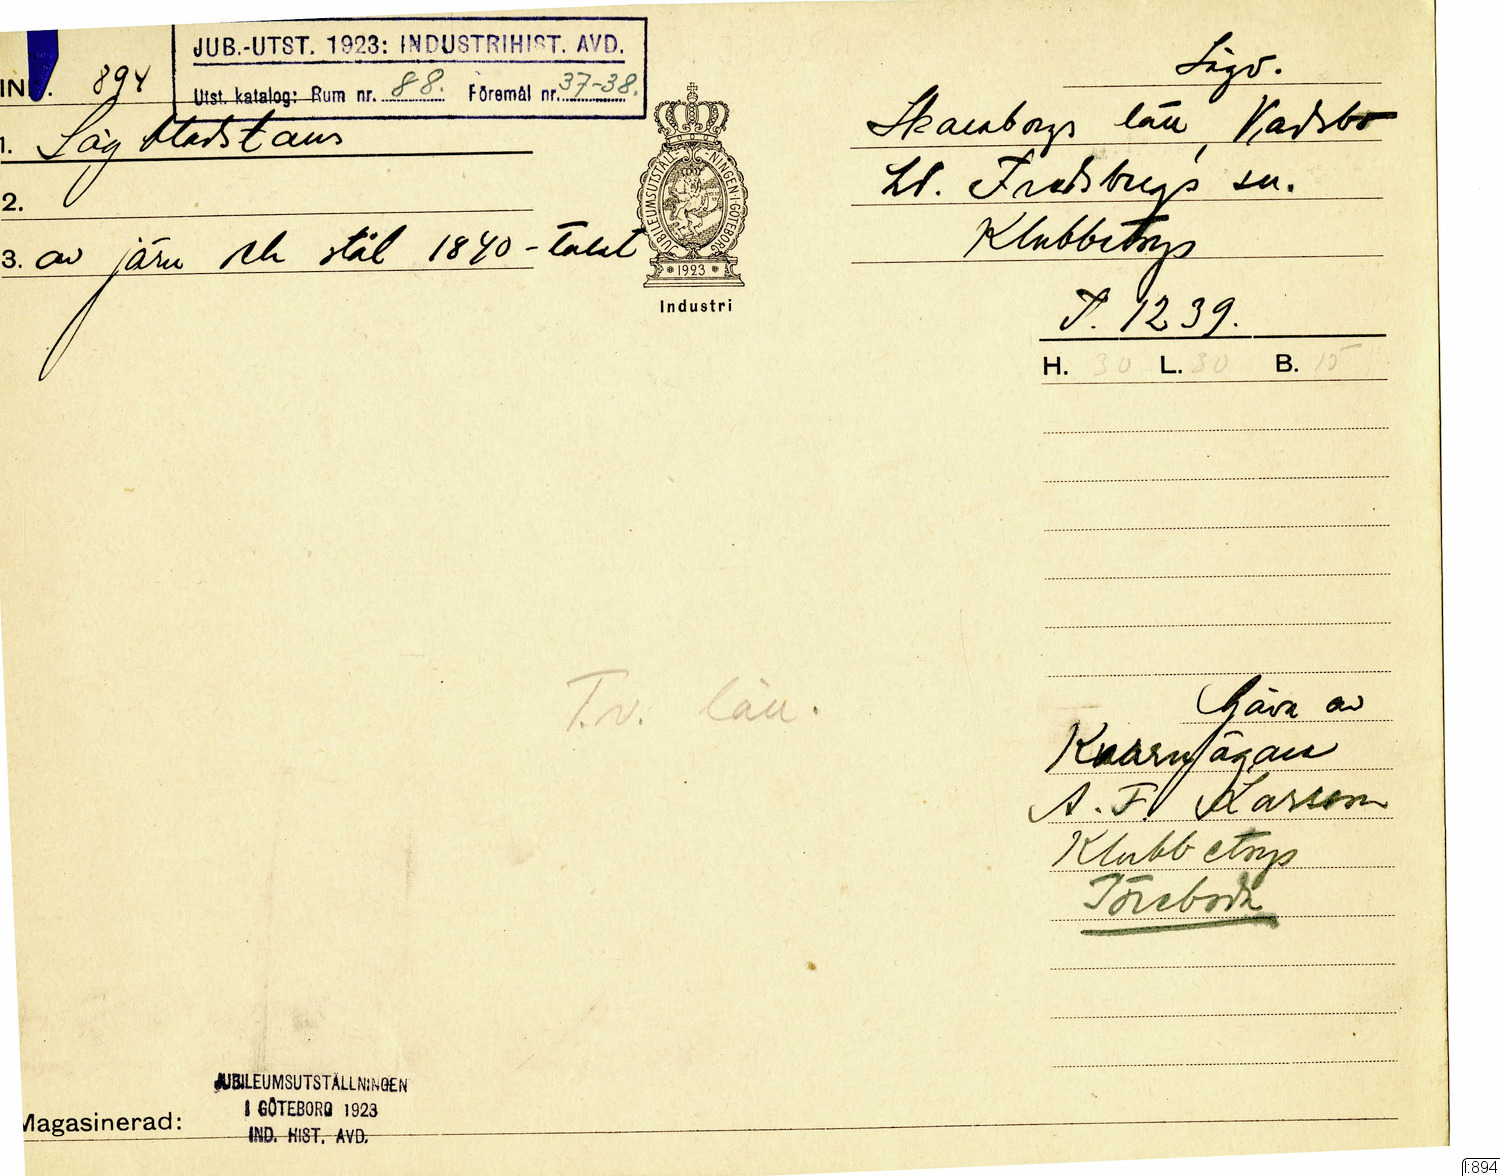 JUB.-UTST. 1923: INDUSTRIHIST. AVD.
Utst. katalog: Rum nr. 88. Föremål nr. 37-38.
INV. 894
1. Sågbladstans
2.
3. av järn och stål 1840-talet
JUBILEUMSUTSTÄLLNINGEN I GÖTEBORG
1923
Industri
Sågv.
Skaraborgs län, Vadsbo
hd. Fredsbergs sn.
Klubbetorp
T. 1239.
H. 30 L. 30 B. 15
T.v. län.
Gåva av
Kvarnägare
A. F. Larsson
Klubbetorp
Töreboda
JUBILEUMSUTSTÄLLNINGEN
I GÖTEBORG 1923
IND. HIST. AVD.
Magasinerad:
I:894